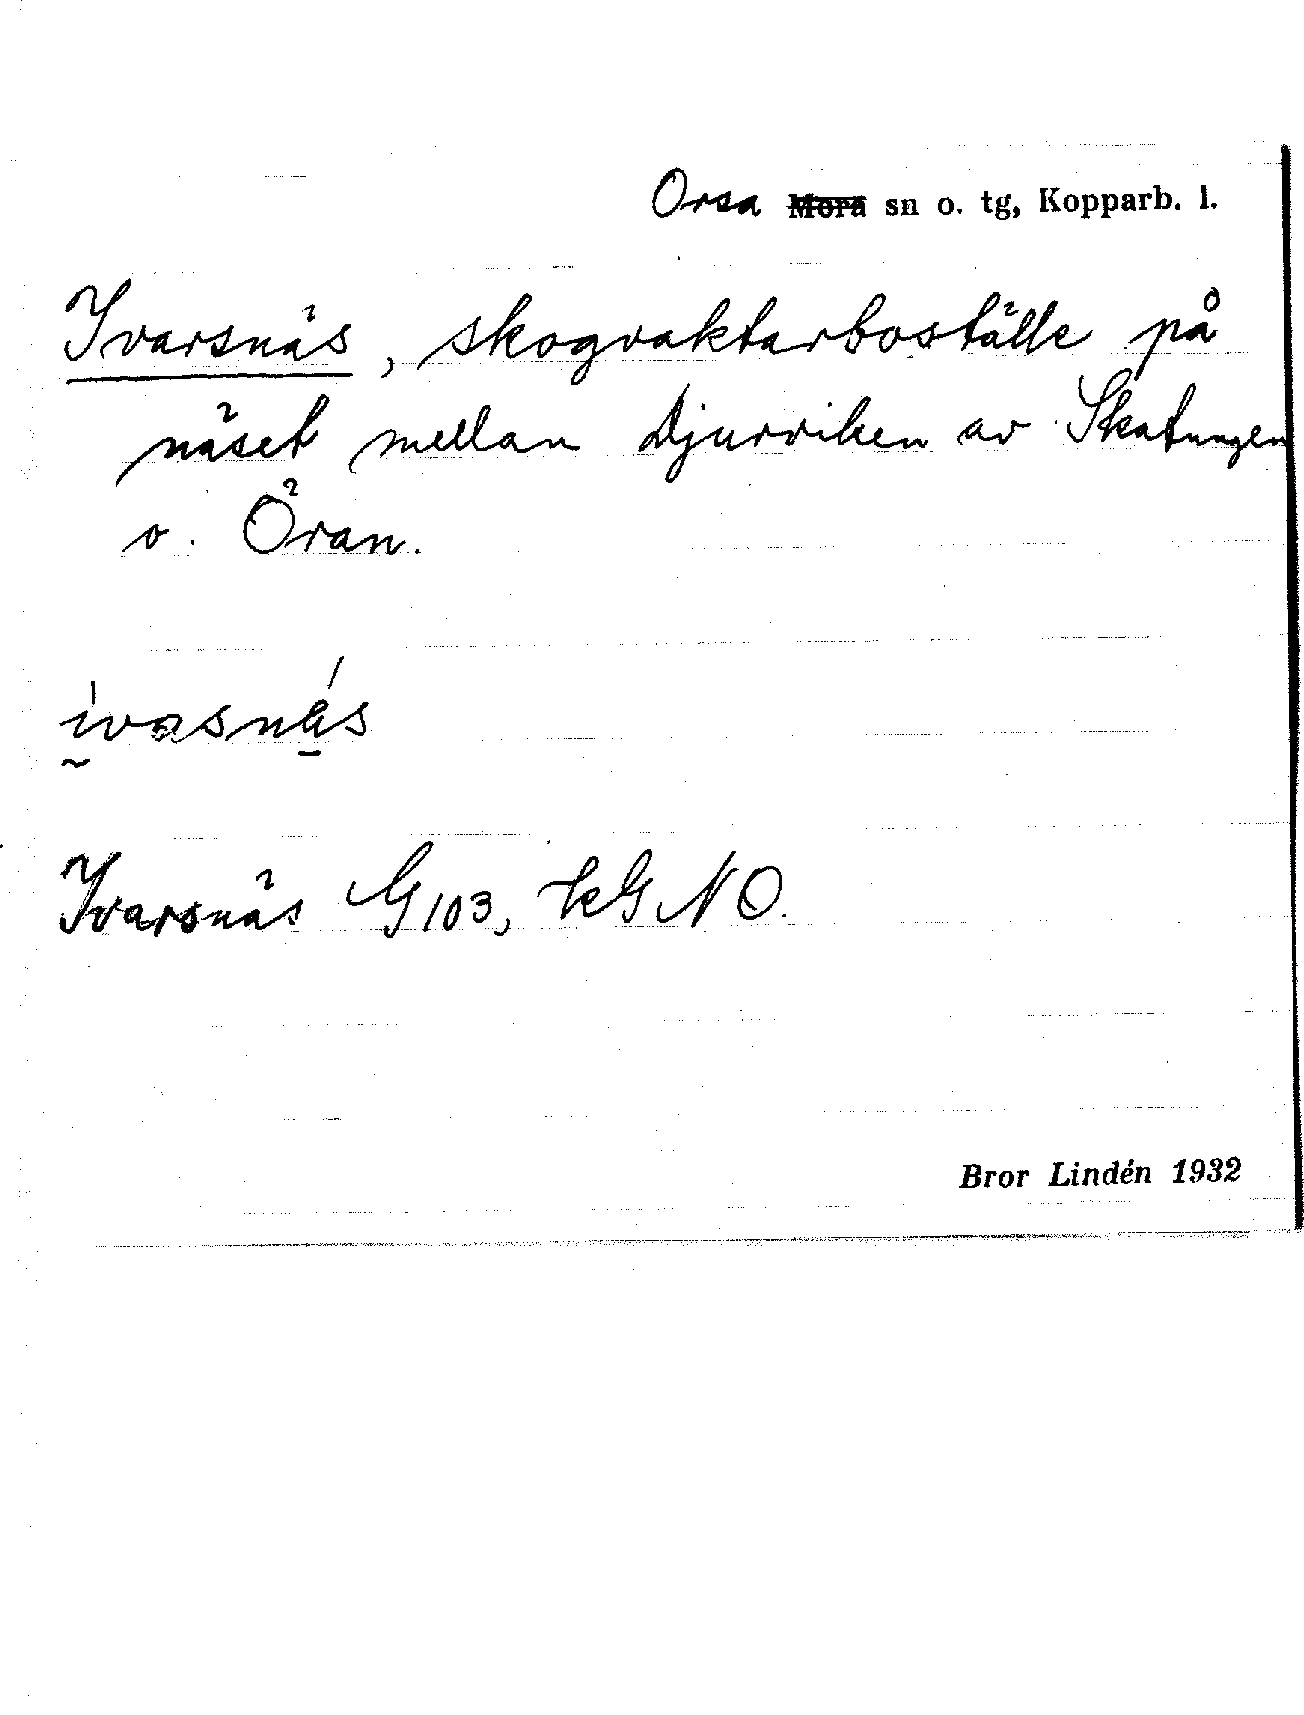 Orsa Mora sn o. tg, Kopparb. l.
Ivarsnäs, skogvaktarboställe på
näset mellan Djurviken av Skatungen
o. Öran.
ivasnäs
Ivarsnäs G103, kG NO.
Bror Lindén 1932